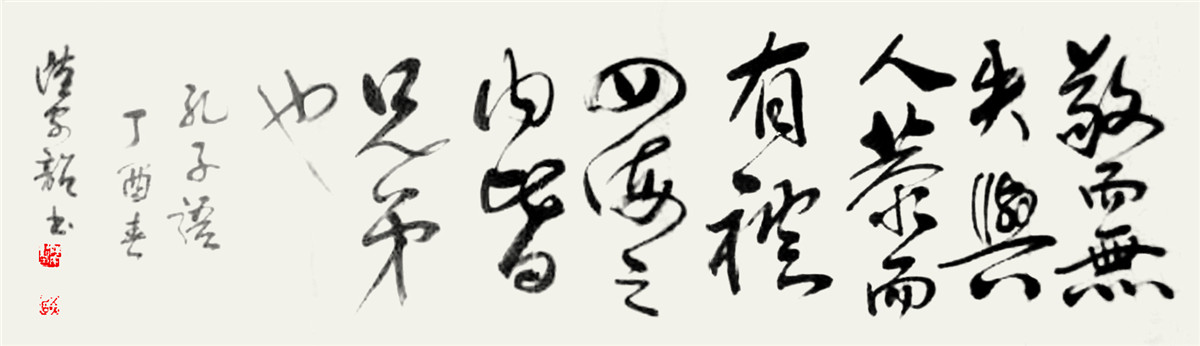 敬而無
失與
人恭而
有禮
四海之
内皆
兄弟
也
孔子語
丁酉春
韶書